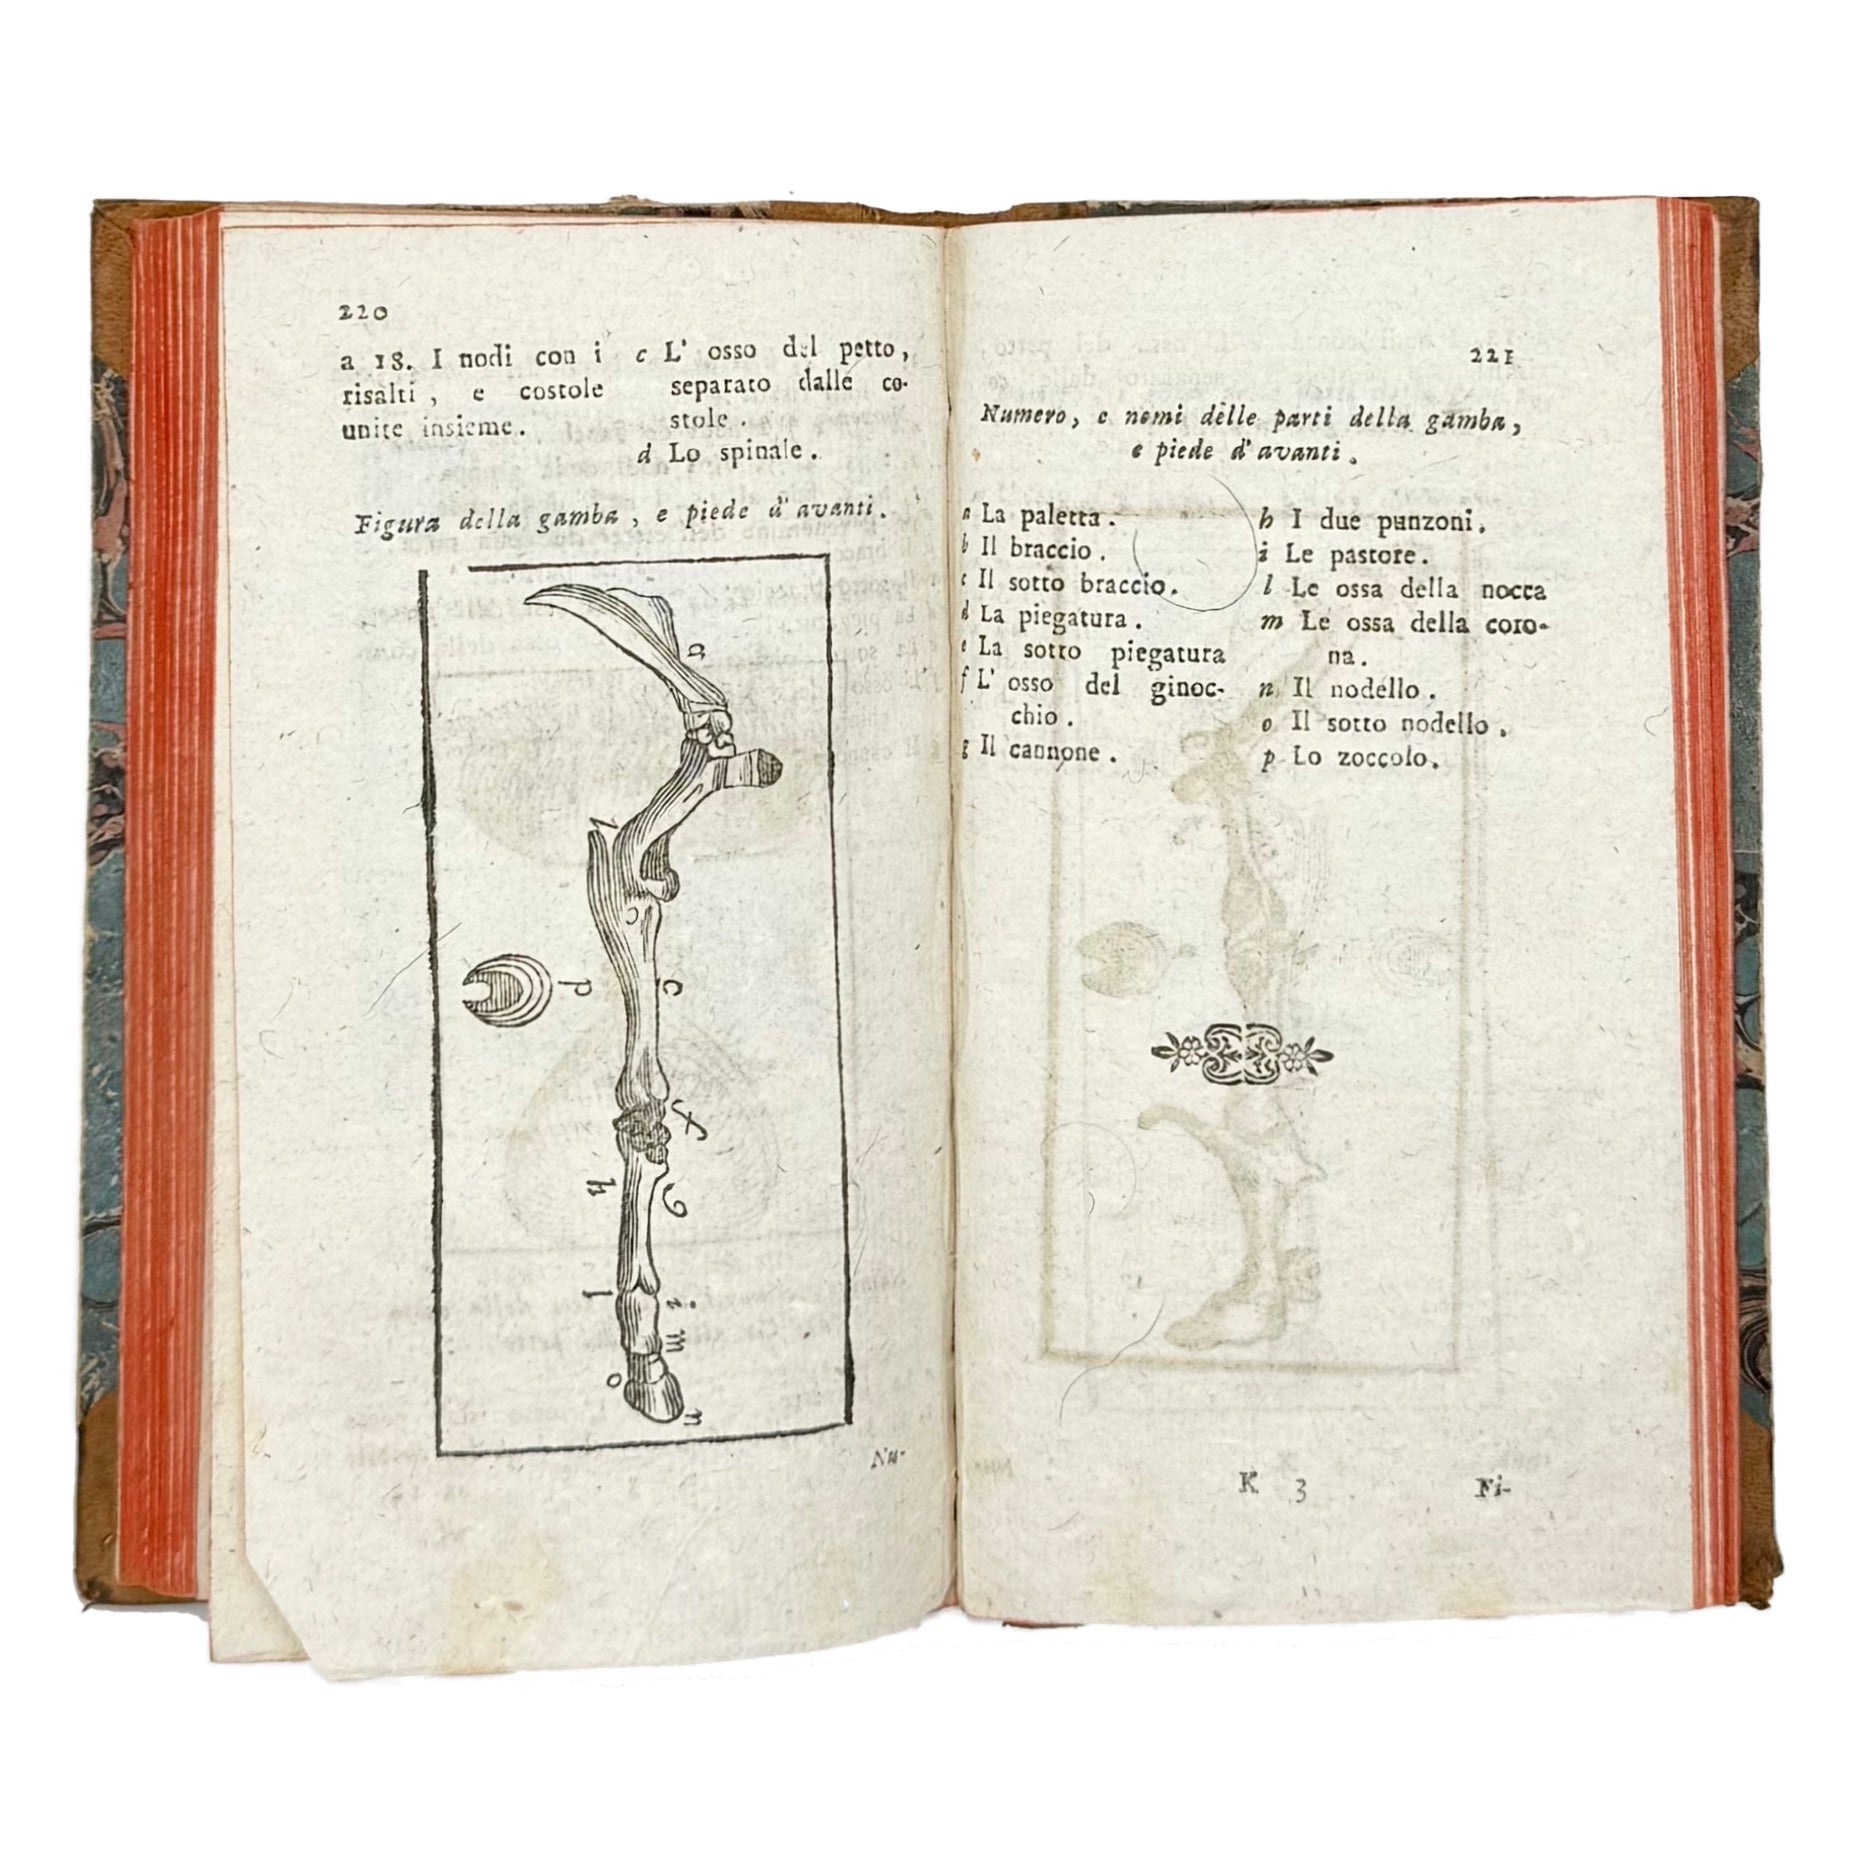 220
a 18. I nodi con i
risalti, e costole
unite insieme.
c L' osso del petto,
separato dalle co-
stole.
d Lo spinale.
Figura della gamba, e piede d'avanti.
a
b
c
c
p
f
h
g
l
i
m
o
n
Nu-
221
Numero, e nomi delle parti della gamba,
e piede d'avanti.
a La paletta.
b Il braccio.
c Il sotto braccio.
d La piegatura.
e La sotto piegatura
f L' osso del ginoc-
chio.
g Il cannone.
h I due punzoni.
i Le pastore.
l Le ossa della nocca
m Le ossa della coro-
na.
n Il nodello.
o Il sotto nodello.
p Lo zoccolo.
K 3
Fi-